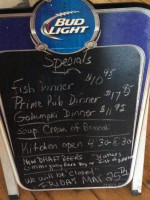 BUD
LIGHT
Specials
Fish Dinner $10.95
Prime Pub Dinner $17.95
Golumpki Dinner $11.95
Soup Cream of Broccoli
Kitchen open 4:30-8:30
New DRAFT BEERS
We will be closed
FRIDAY MAY 25th